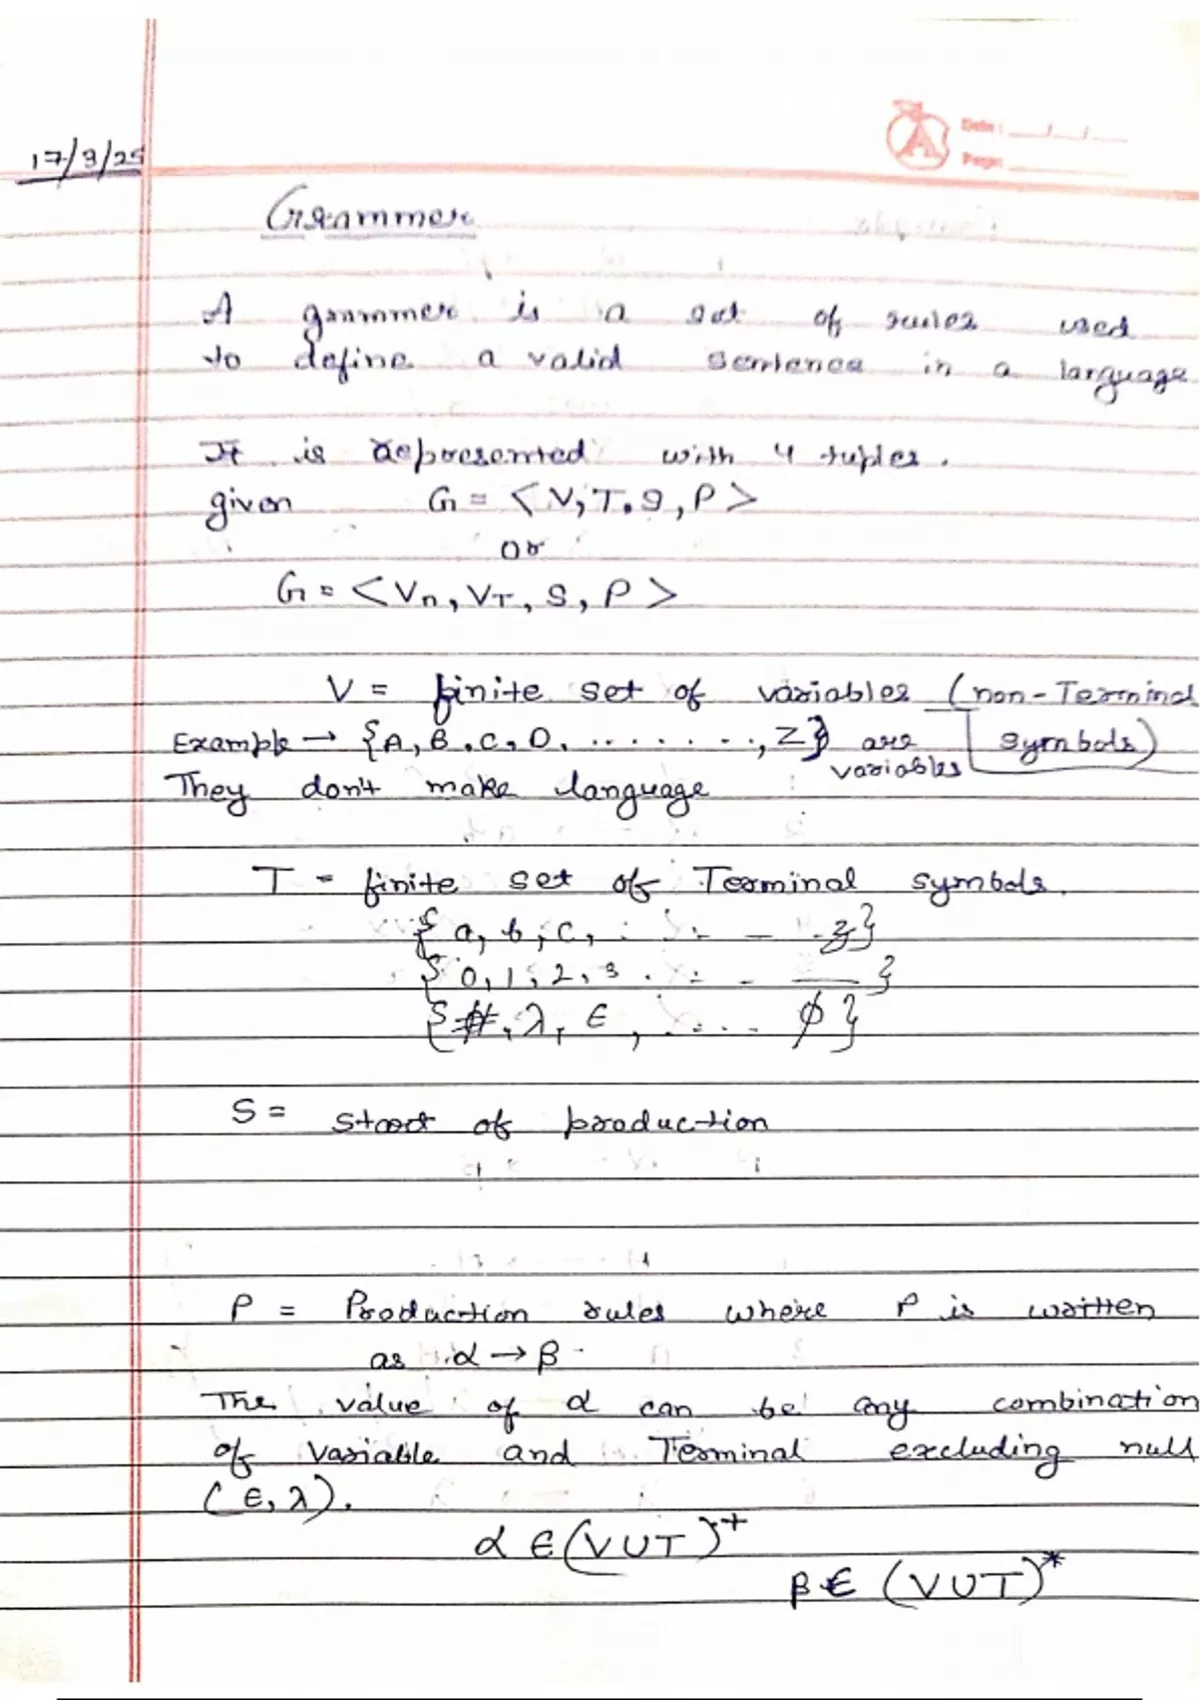 Date: __/__/__
Page:
17/3/25
Grammer
A grammer is a set of rules used
to define a valid sentence in a language
It is represented with 4 tuples.
given G = <V, T, S, P>
or
G = <Vn, VT, S, P>
V = finite set of variables (non-Terminal
Example → {A, B, C, D, ........, Z} are symbols)
variables
They don't make language
T = finite set of Terminal symbols.
{a, b, c, . . . - - z}
{0, 1, 2, 3 . . . - ___}
{#, λ, ε, .... φ}
S = Start of production
P = Production rules where P is written
as α → β
The value of α can be any combination
of Variable and Terminal excluding null
(ε, λ).
α ∈ (V U T)⁺
β ∈ (V U T)*